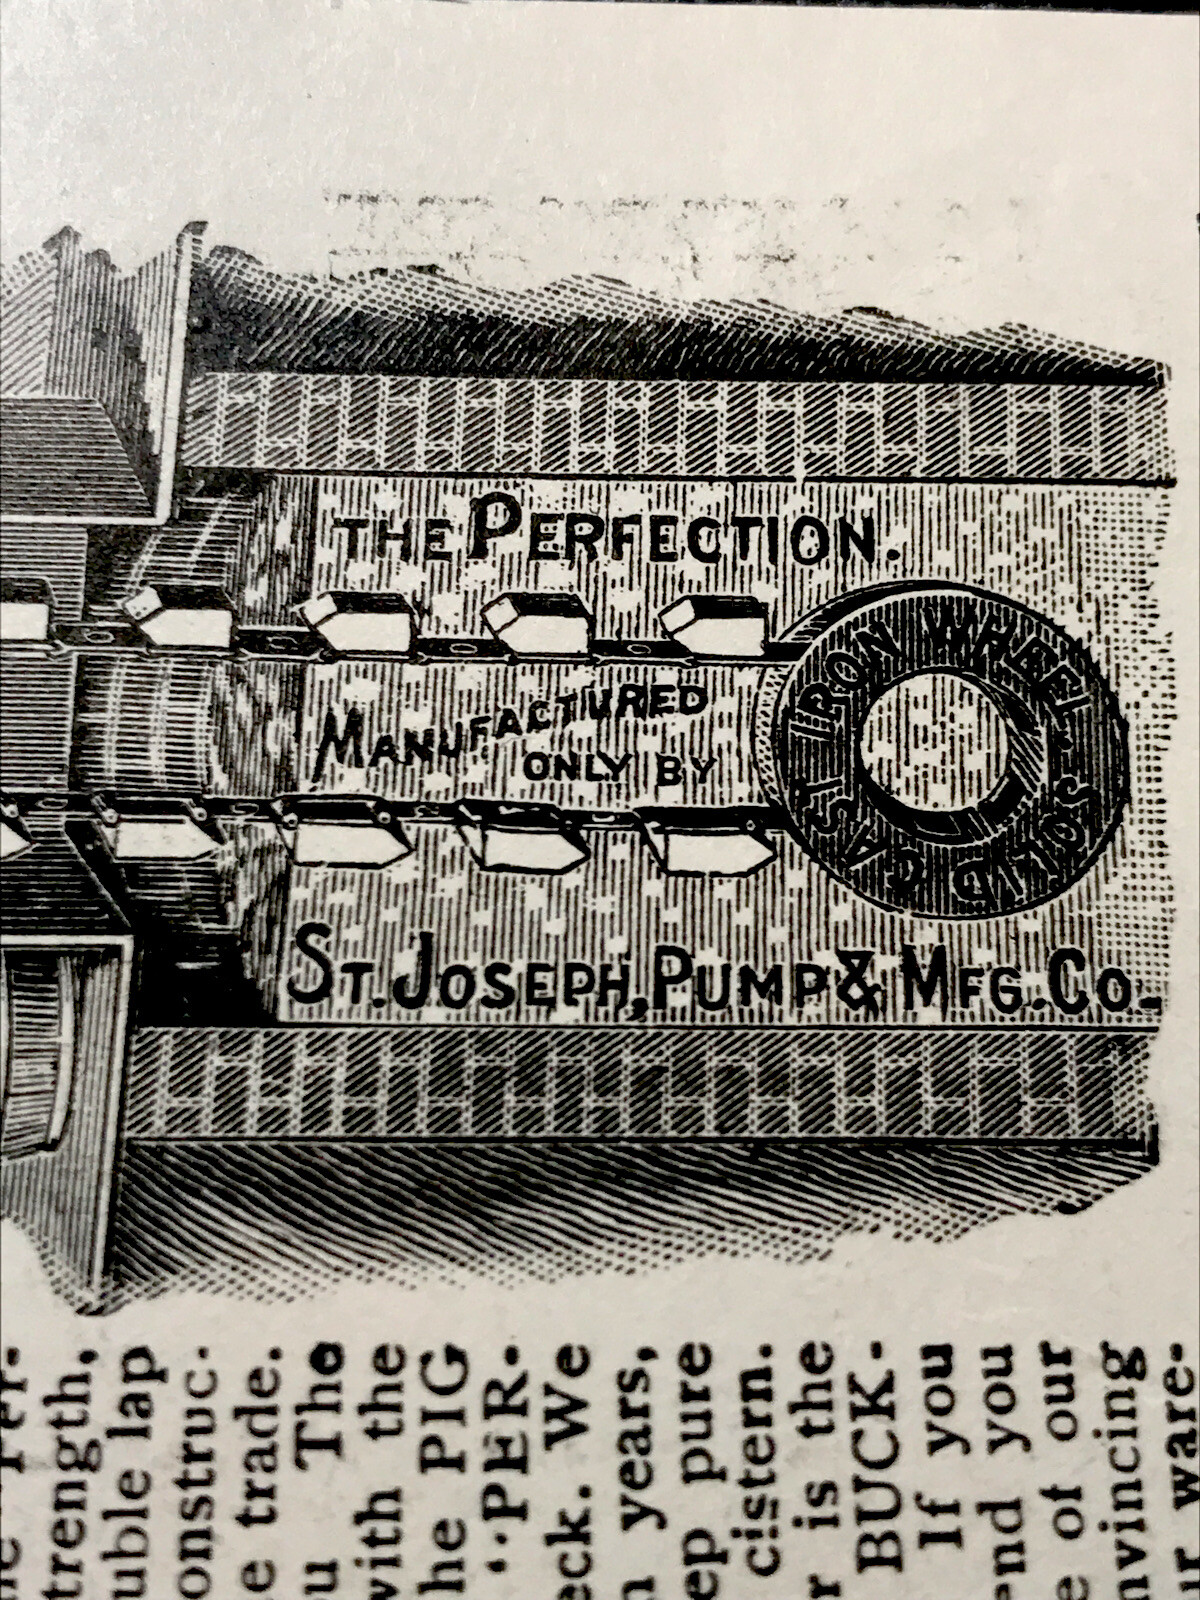 THE PERFECTION.
MANUFACTURED
ONLY BY
SOLID CAST IRON WHEEL.
ST. JOSEPH, PUMP & MFG. CO.
trength,
uble lap
onstruc-
e trade.
u The
with the
he PIG
"PER-
eck. We
n years,
ep pure
cistern.
r is the
BUCK-
If you
end you
e of our
nvincing
ur ware-